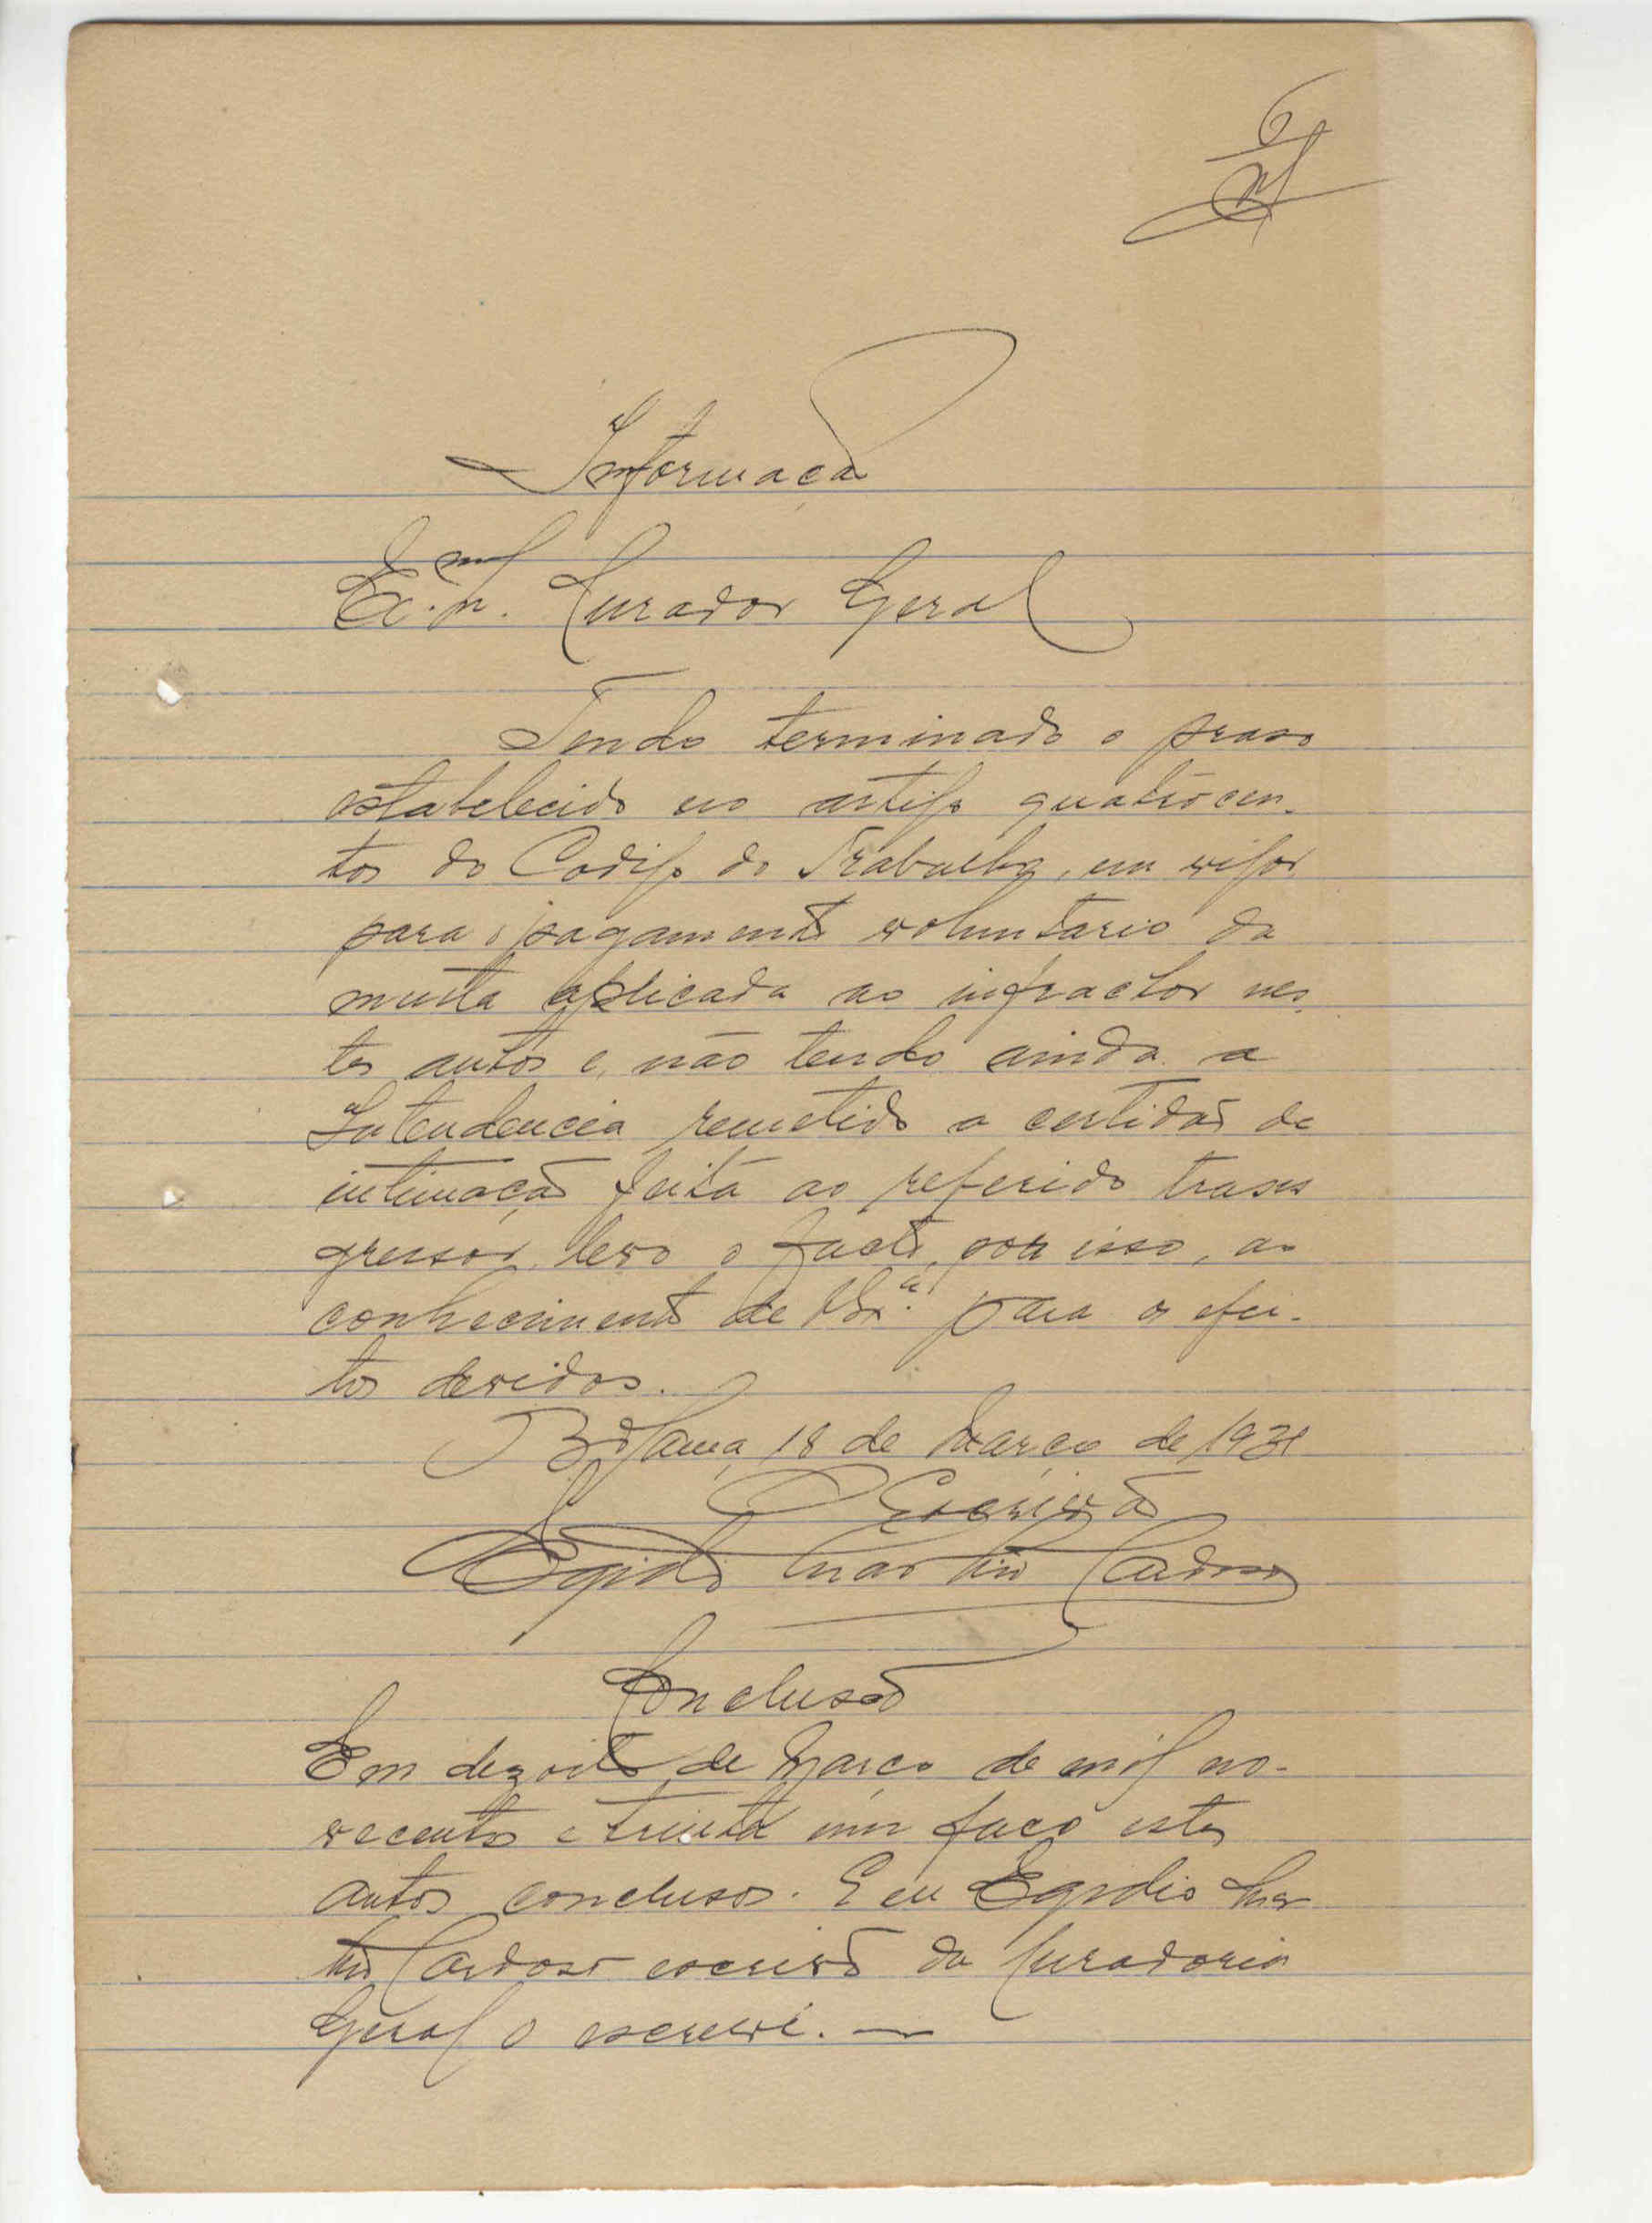 6
Informação
Ex.mo Curador Geral
Tendo terminado o praso
estabelecido no artigo quatrocen-
tos do Codigo do Trabalho, em vigor,
para o pagamento voluntario da
multa aplicada ao infractor nes-
tes autos e, não tendo ainda a
Intendencia remetido a certidão de
intimação feita ao referido trans
gressor, levo o facto, por isso, ao
conhecimento de V. Ex.ª para os efei-
tos devidos.
Bolama, 18 de Março de 1931
O Escrivão
Egidio Martins Cardoso
Conclusão
Em dezoito de Março de mil no-
vecentos e trinta um faço estes
autos conclusos. E eu Egidio Mar
tins Cardoso escrivão da Curadoria
Geral o escrevi.